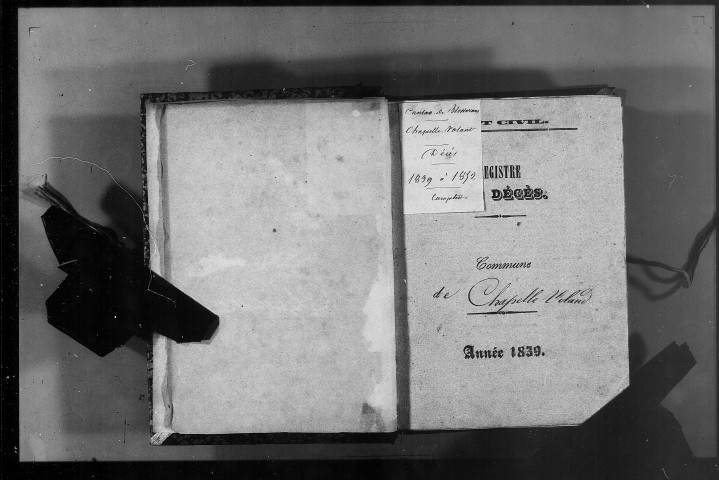 Canton de Bletterans
Chapelle Voland
Décès
1839 à 1852
Complet
T CIVIL.
EGISTRE
DÉCÈS.
Commune
de Chapelle Voland
Année 1839.